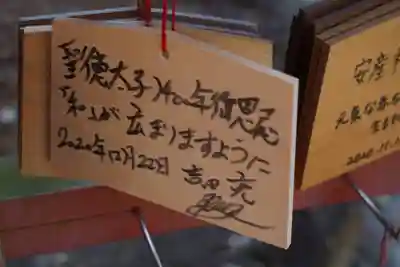 「聖徳太子」1400年御恩忌
「和」が広まりますように
2020年12月22日 吉田 充
安産
元気な赤
2020.11.1